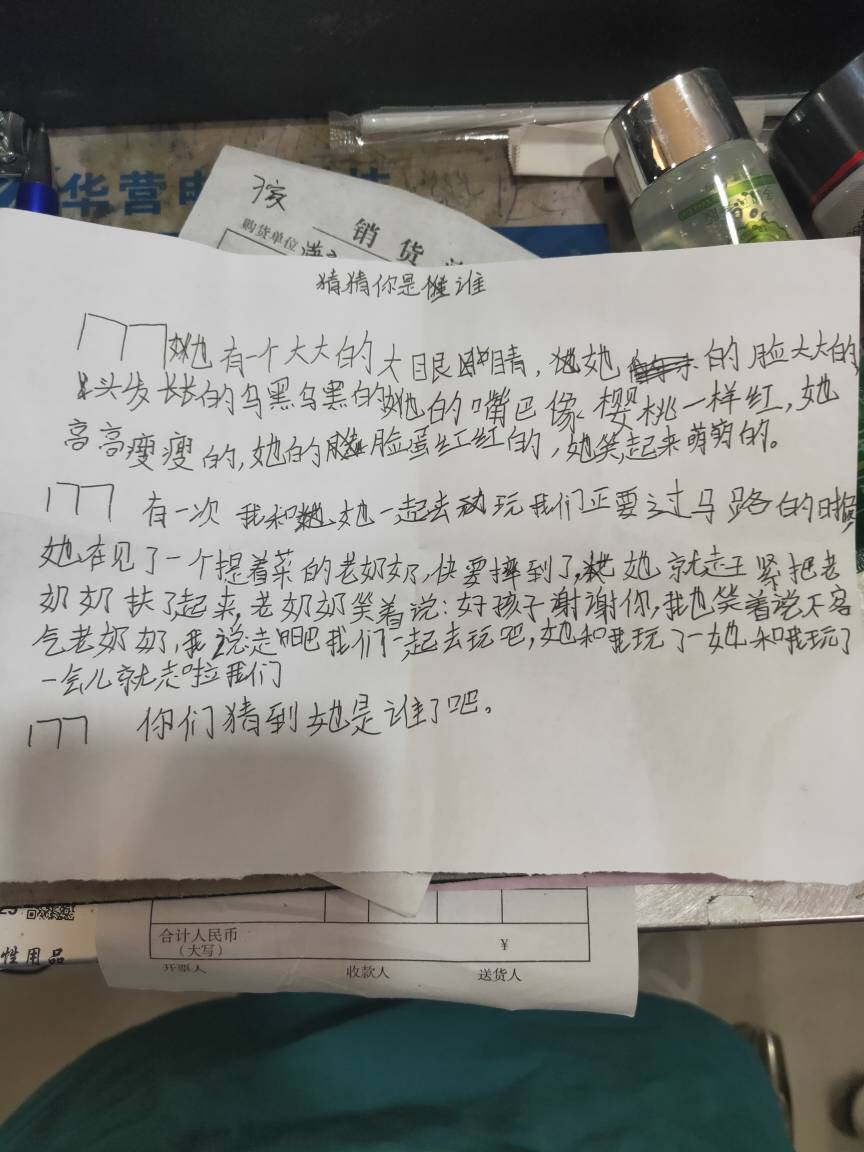 华营电
孩
销货
购货单位
猜猜你是谁
她有一个大大的大眼睛,她的脸大大的
头发长长的乌黑乌黑的她的嘴巴像樱桃一样红,她
高高瘦瘦的,她的脸蛋红红的,她笑起来萌萌的。
有一次我和她一起去玩我们正要过马路的时候,
她在见了一个提着菜的老奶奶,快要摔到了,她就赶紧把老
奶奶扶了起来,老奶奶笑着说:好孩子谢谢你,我也笑着说不客
气老奶奶,我说走吧我们一起去玩吧,她和我玩了一她和我玩了
一会儿就走啦我们
你们猜到她是谁了吧。
合计人民币
(大写)
¥
性用品
开票人 收款人 送货人